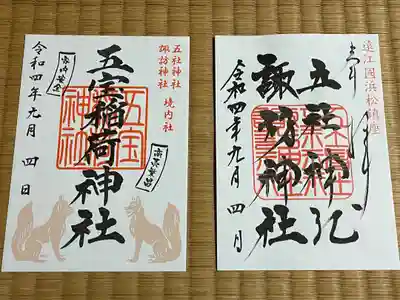 五社神社
諏訪神社
境内社
商売繁昌
五宝稲荷神社
家内安全
令和四年九月四日
遠江國浜松鎮座
五社神社
諏訪神社
令和四年九月四日